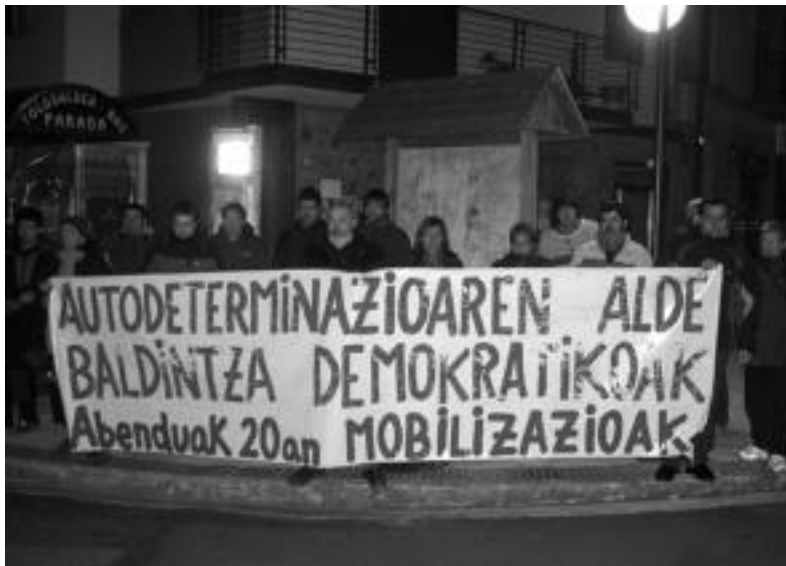 PARADA
AUTODETERMiNAZiOAREN ALDE
BALDiNTZA DEMOKRATiKOAK
AbenduaK 20an MOBiLiZAZiOAK